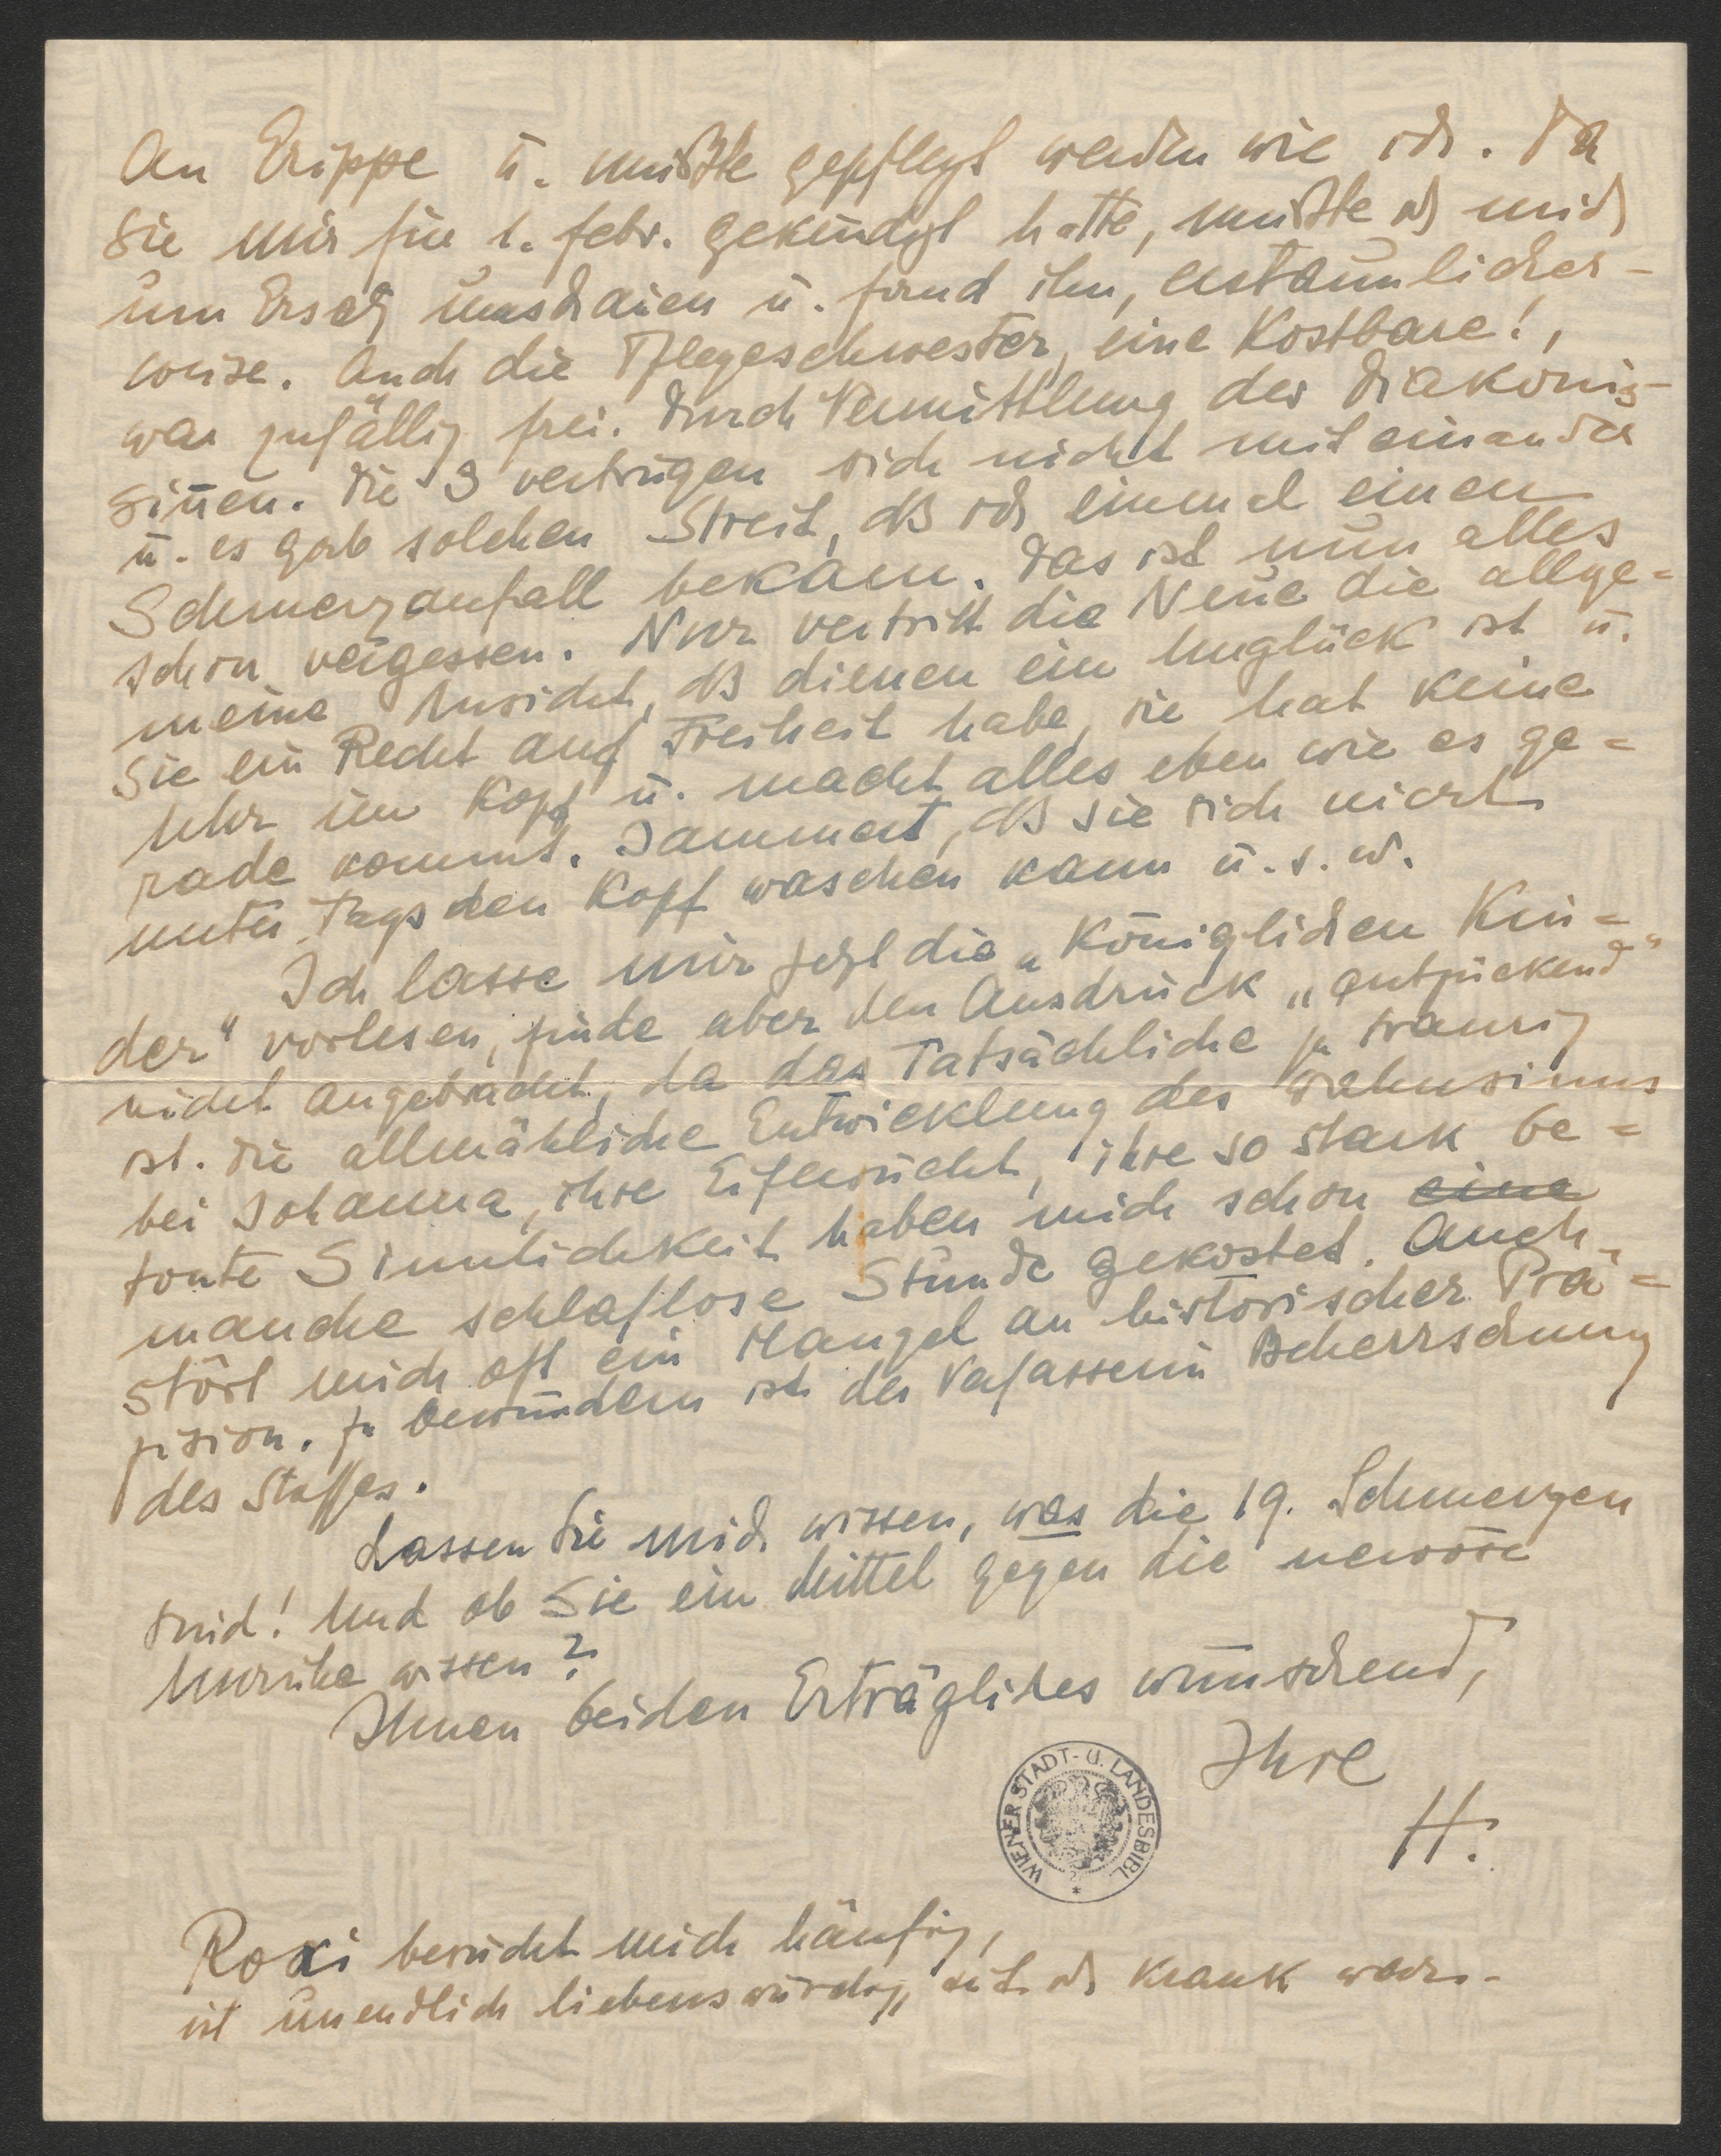 An Grippe u. mußte gepflegt werden wie ich. Da
sie mir für 1. Febr. gekündigt hatte, mußte ich mich
um Ersatz umschauen u. fand ihn, erstaunlicher-
weise. Auch die Pflegeschwester, eine Kostbare!,
war zufällig frei. Durch Vermittlung der Diakonis-
sinen. Die 3 vertrugen sich nicht miteinander
u. es gab solchen Streit, dß ich einmal einen
Schmerzanfall bekam. Das ist nun alles
schon vergessen. Nur vertritt die Neue die allge=
meine Ansicht, dß dienen ein Unglück ist u.
sie ein Recht auf Freiheit habe, sie hat keine
Uhr im Kopf u. macht alles eben wie es ge=
rade kommt. Jammert, dß sie sich nicht
unter Tags den Kopf waschen kann u.s.w.
Ich lasse mir jetzt die „Königlichen Kin=
der" vorlesen, finde aber den Ausdruck „entzückend"
nicht angebracht, da das Tatsächliche zu traurig
ist. Die allmähliche Entwicklung des Wahnsinns
bei Johanna, ihre Eifersucht, ihre so stark be=
tonte Sinnlichkeit haben mich schon eine
manche schlaflose Stunde gekostet. Auch
stört mich oft ein Mangel an historischer Prä=
zision. Zu bewundern ist der Verfasserin Beherrschung
des Stoffes.
Lassen Sie mich wissen, was die 19. Schmerzen
sind! Und ob Sie ein Mittel gegen die nervöse
Unruhe wissen?
Ihnen beiden Erträgliches wünschend,
Ihre
H.
WIENER STADT- U. LANDESBIBL.
Roxi besucht mich häufig,
ist unendlich liebenswürdig, seit ich krank war.